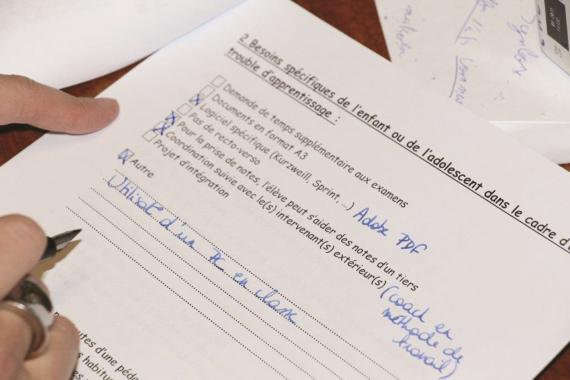 2. Besoins spécifiques de l'enfant ou de l'adolescent dans le cadre d'
trouble d'apprentissage :
Demande de temps supplémentaire aux examens
Documents en format A3
Logiciel spécifique (Kurzweil, Sprint, ...) Adobe PDF
Pas de recto-verso
Pour la prise de notes, l'élève peut s'aider des notes d'un tiers
Coordination suivie avec le(s) intervenant(s) extérieur(s) (coach en
méthode de
travail)
Projet d'intégration
Autre
d'un PC en classe